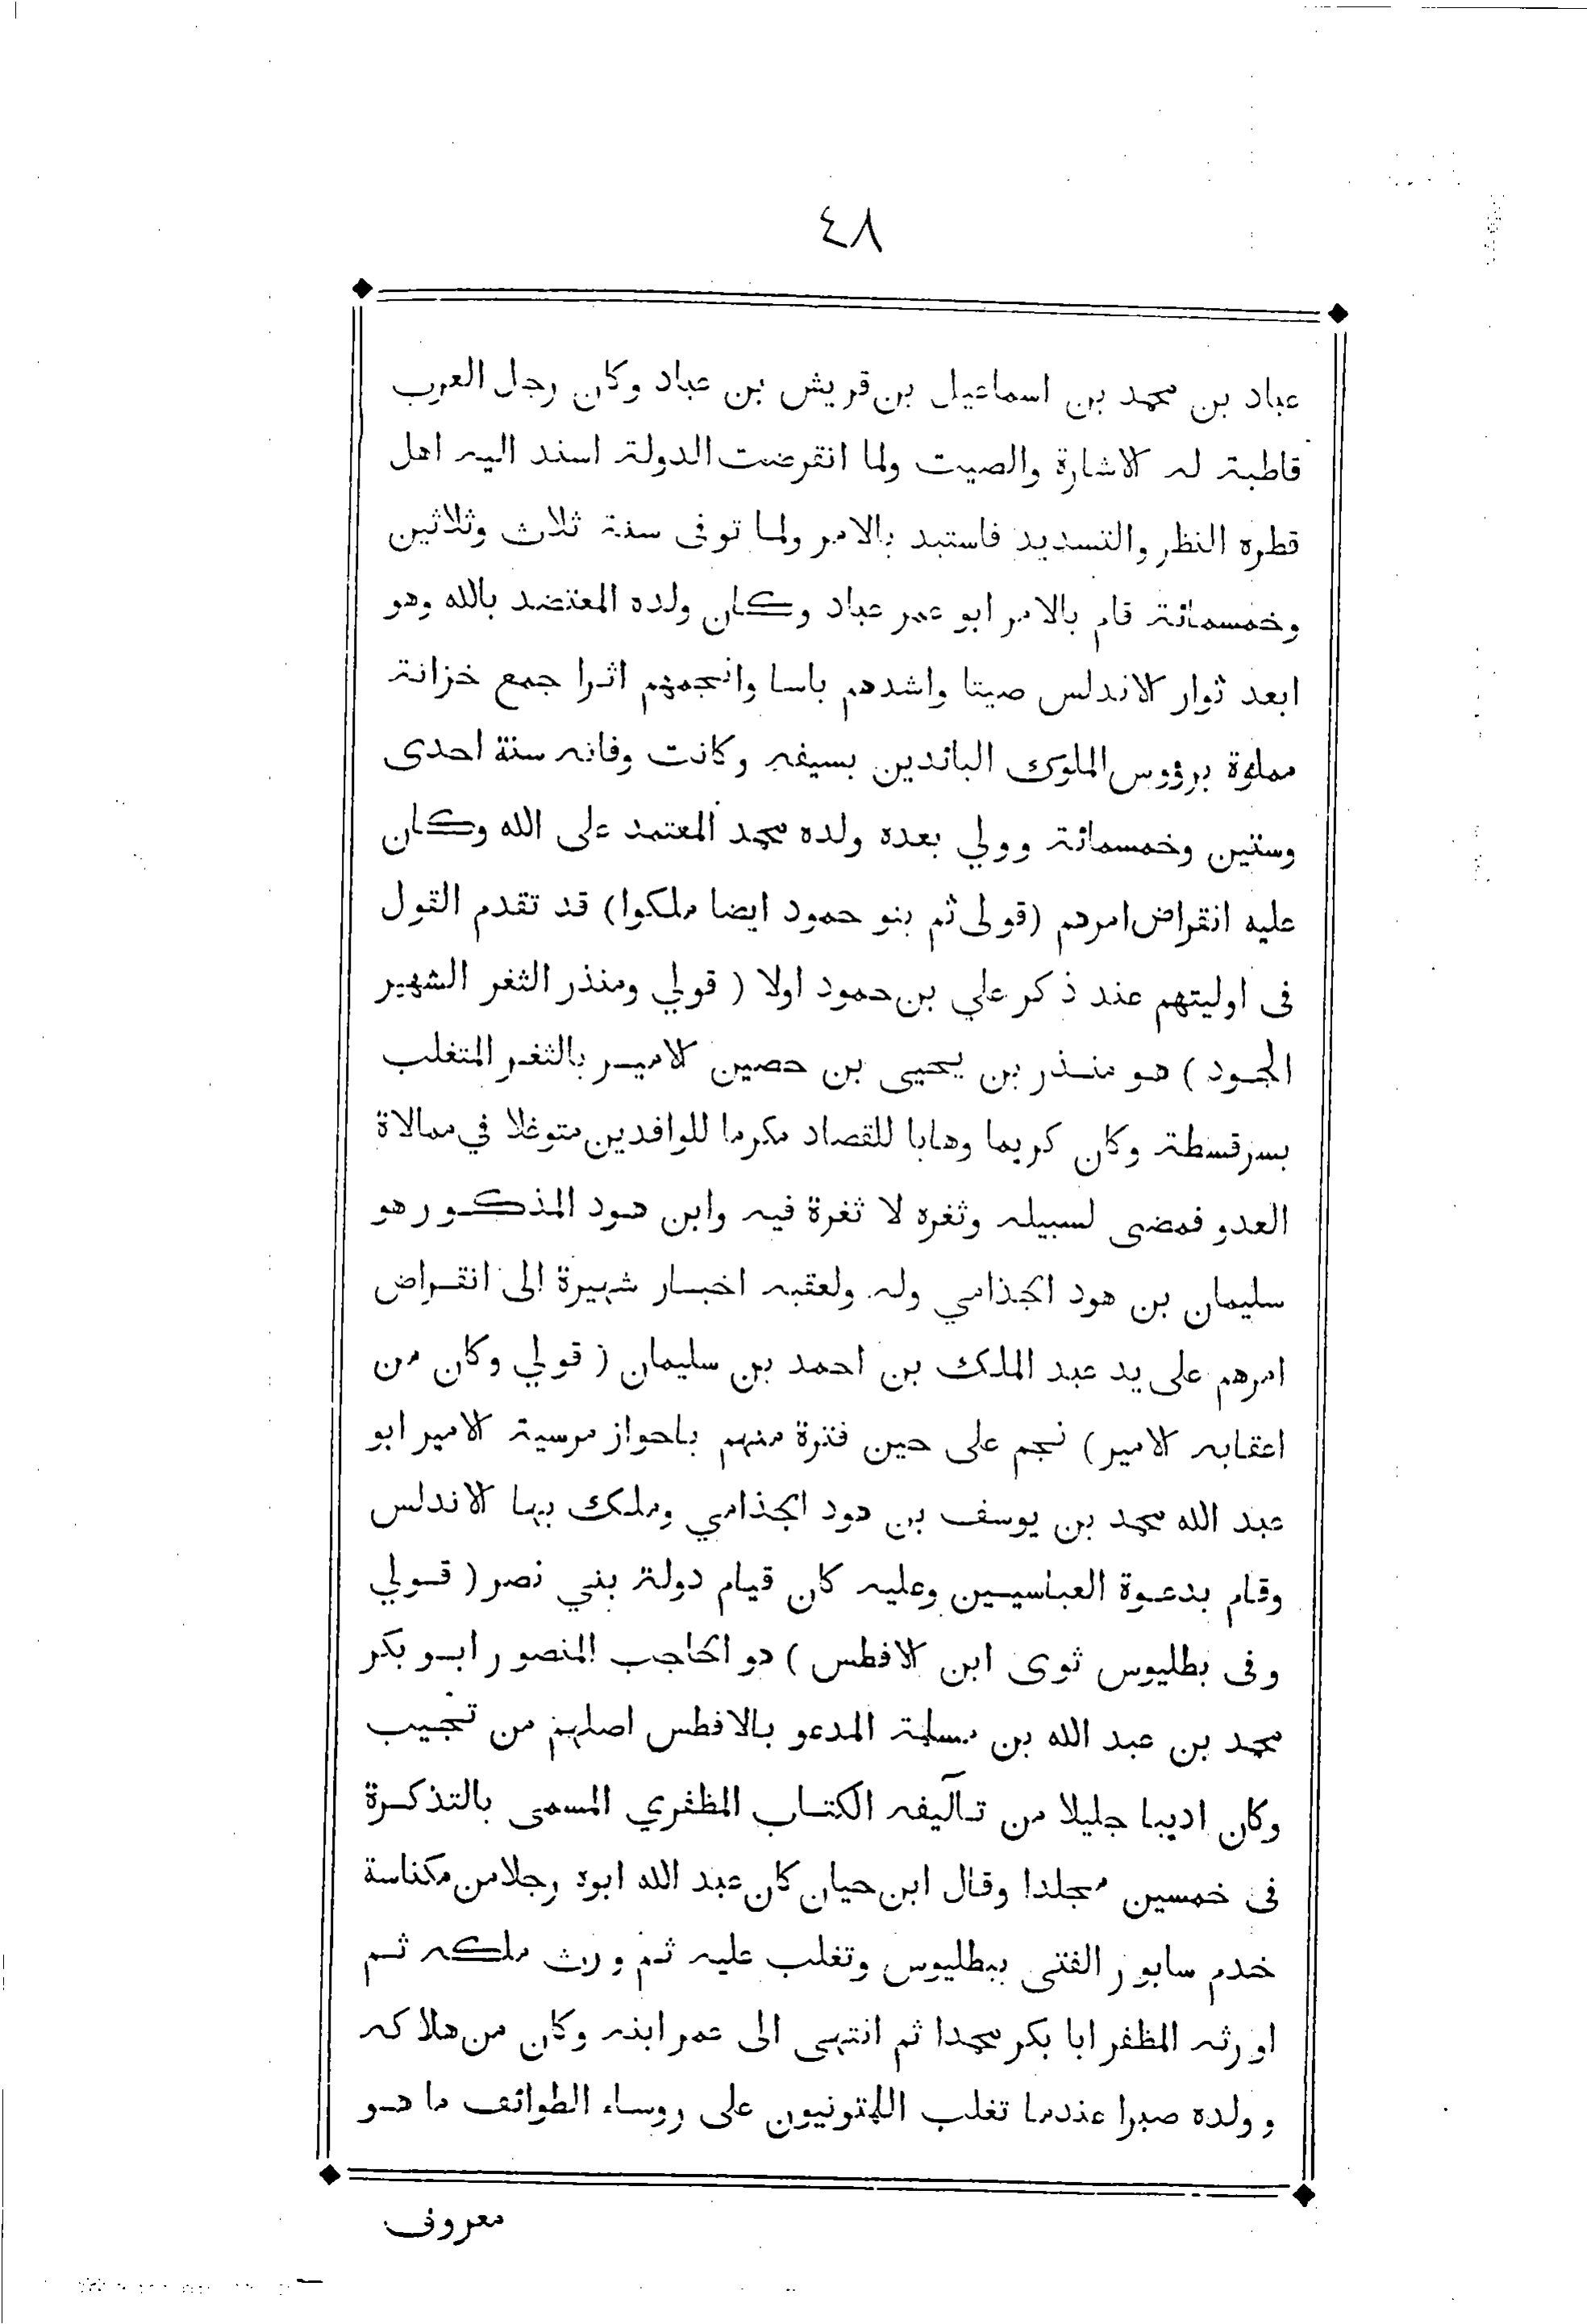 ٤٨
عباد بن محمد بن اسماعيل بن قريش بن عباد وكان رجل العرب
قاطبة له الاشارة والصيت ولما انقرضت الدولة اسند اليه اهل
قطره النظر والتسديد فاستبد بالامر ولما توفى سنة ثلاث وثلاثين
وخمسمائة قام بالامر ابو عمر عباد وكان ولده المعتضد بالله وهو
ابعد ثوار الاندلس صيتا واشدهم باسا وانجمهم اثرا جمع خزانة
مملوة برؤوس الملوك البائدين بسيفه وكانت وفاته سنة احدى
وستين وخمسمائة وولي بعده ولده محمد المعتمد على الله وكان
عليه انقراض امرهم (قولى ثم بنو حمود ايضا ملكوا) قد تقدم القول
فى اوليتهم عند ذكر علي بن حمود اولا ( قولي ومنذر الثغر الشهير
الجود ) هو منذر بن يحيى بن حصين الامير بالثغر المتغلب
بسرقسطة وكان كريما وهابا للقصاد مكرما للوافدين متوغلا في ممالاة
العدو فمضى لسبيله وثغره لا ثغرة فيه وابن هود المذكور هو
سليمان بن هود الجذامي وله ولعقبه اخبار شهيرة الى انقراض
امرهم على يد عبد الملك بن احمد بن سليمان ( قولي وكان من
اعقابه الامير ) نجم على حين فترة منهم باحواز مرسية الامير ابو
عبد الله محمد بن يوسف بن هود الجذامي وملك بها الاندلس
وقام بدعوة العباسيين وعليه كان قيام دولة بني نصر ( قولي
وفى بطليوس ثوى ابن الافطس ) هو الحاجب المنصور ابو بكر
محمد بن عبد الله بن مسلمة المدعو بالافطس اصلهم من تجيب
وكان اديبا جليلا من تآليفه الكتاب المظفري المسمى بالتذكرة
فى خمسين مجلدا وقال ابن حيان كان عبد الله ابوه رجلا من مكناسة
خدم سابور الفتى ببطليوس وتغلب عليه ثم ورث ملكه ثم
اورثه المظفر ابا بكر محمدا ثم انتهى الى عمر ابنه وكان من هلاكه
وولده صبرا عندما تغلب اللمتونيون على روساء الطوائف ما هو
معروف